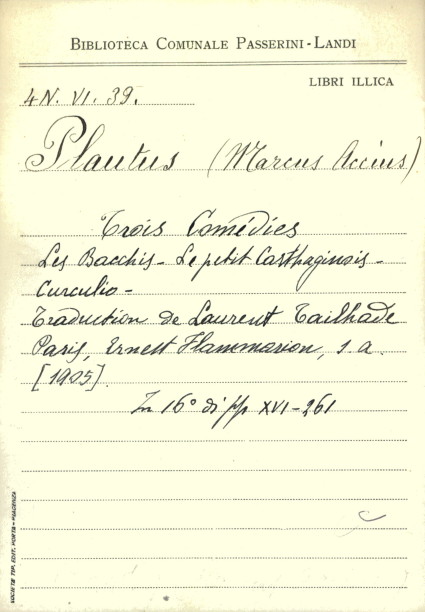 BIBLIOTECA COMUNALE PASSERINI-LANDI
LIBRI ILLICA
4N. VI. 39.
Plautus (Marcus Accius)
Trois Comédies
Les Bacchis - Le petit Carthaginois -
Curculio -
Traduction de Laurent Tailhade
Paris, Ernest Flammarion, s. a.
[1905]
In 16° di pp XVI-261
SOCIETÀ TIP. EDIT. PORTA - PIACENZA